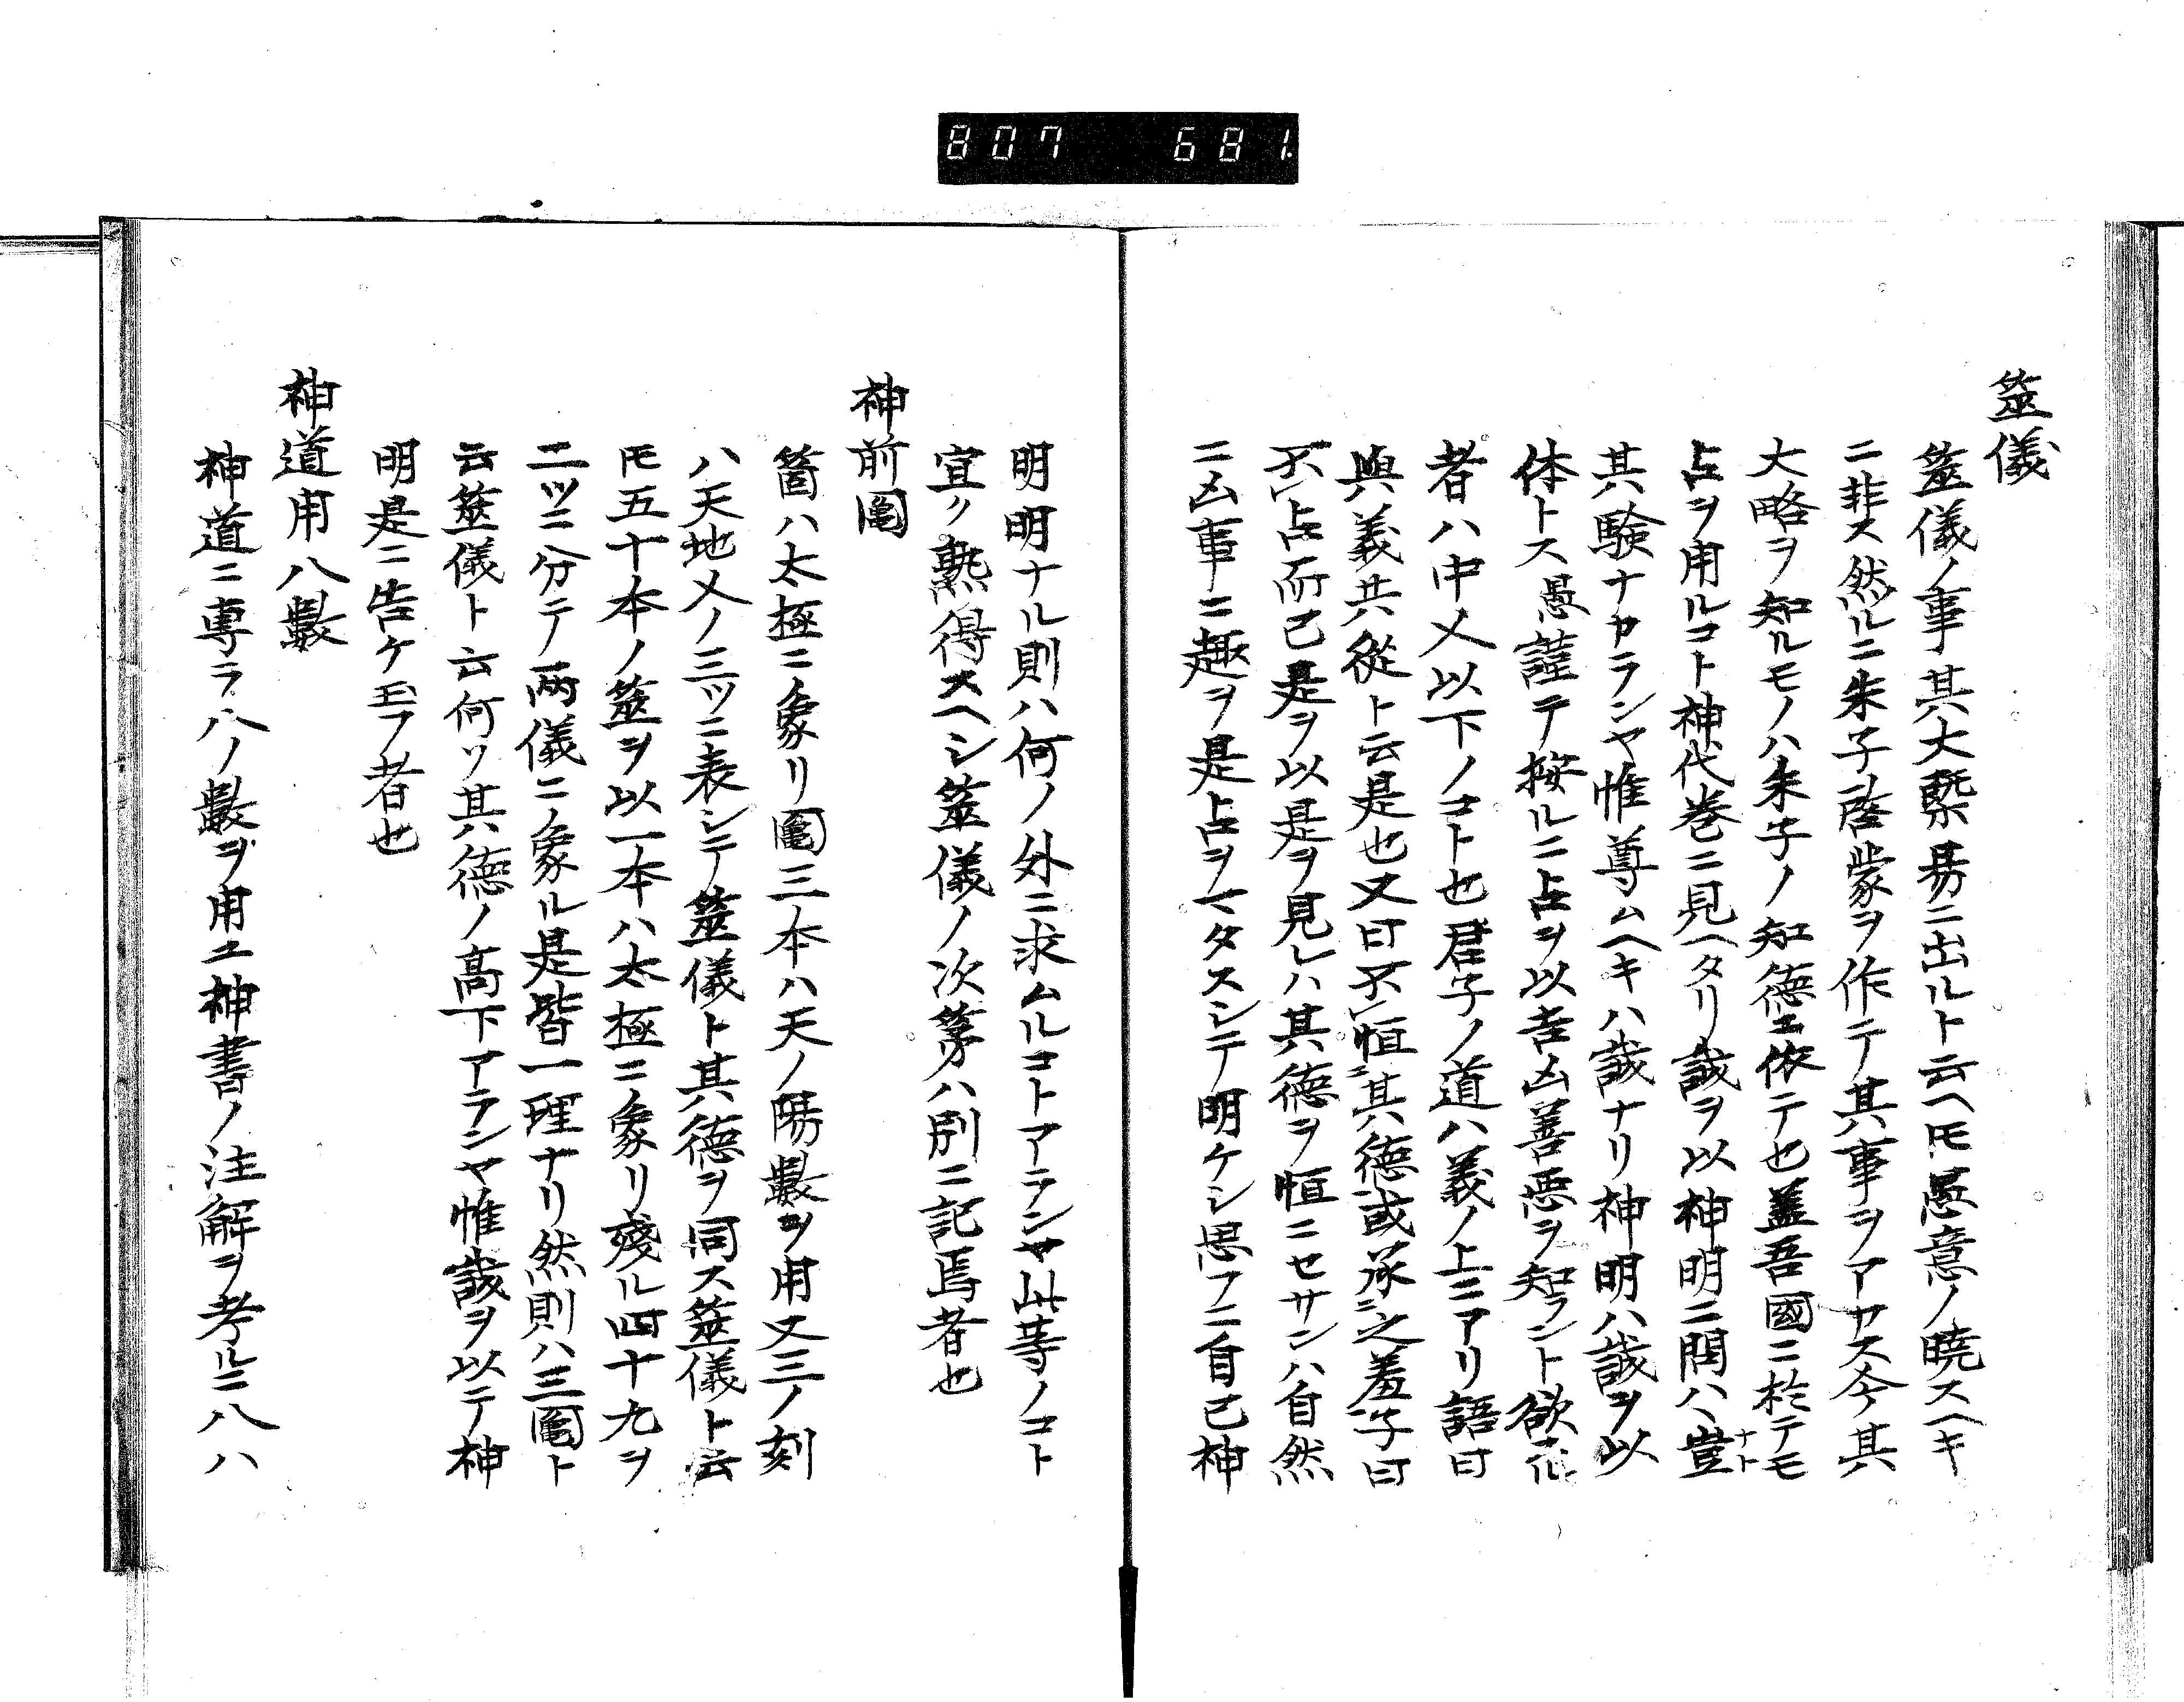 807 681
筮儀
筮儀ノ事其大槩易ニ出ルト云ヘ𪜈愚意ノ曉スヘキ
ニ非ス然ルニ朱子啓蒙ヲ作テ其事ヲアヤス今其
大略ヲ知ルモノハ朱子ノ知徳エ依テ也蓋吾國ニ於テモ
占ヲ用ルコト神代巻ニ見ヘタリ誠ヲ以神明ニ問ハ豈ナト
其験ナカランヤ惟尊ムヘキハ誠ナリ神明ハ誠ヲ以
体トス愚謹テ按ルニ占ヲ以吉凶善悪ヲ知ラント欲ル
者ハ中人以下ノコト也君子ノ道ハ義ノ上ニアリ語曰
與義共從ト云是也又曰不恒其徳或承之羞子曰
不占而已是ヲ以是ヲ見レハ其徳ヲ恒ニセサンハ自然
ニ凶事ニ趣ヲ是占ヲマタスシテ明ケシ思フニ自己神
明明ナル則ハ何ノ外ニ求ムルコトアランヤ此等ノコト
宜ク熟得スヘシ筮儀ノ次第ハ別ニ記焉者也
神前圖
筥ハ太極ニ象リ圖三本ハ天ノ陽數ヲ用又三ノ刻
ハ天地人ノ三ツニ表シテ筮儀ト其徳ヲ同ス筮儀ト云
𪜈五十本ノ筮ヲ以一本ハ太極ニ象リ殘ル四十九ヲ
二ツニ分テ兩儀ニ象ル是皆一理ナリ然則ハ三圖ト
云筮儀ト云何ソ其徳ノ高下アランヤ惟誠ヲ以テ神
明是ニ告ケ玉フ者也
神道用八數
神道ニ専ラ八ノ數ヲ用エ神書ノ注解ヲ考ルニ八ハ